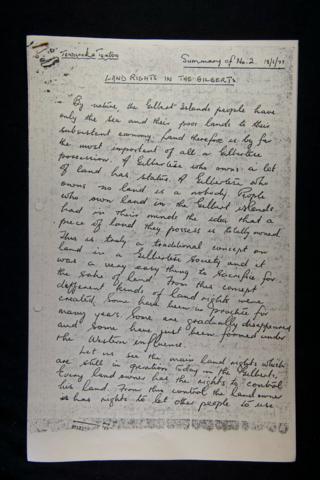 Summary of No. 2. 18/5/77
LAND RIGHTS IN THE GILBERTS
By native, the Gilbert Islands people have
only the sea and their poor lands to their
subsistent economy. Land therefore is by far
the most important of all a Gilbertese
possession. A Gilbertese who owns a lot
of land has status. A Gilbertese who
owns no land is a nobody. People
who own land in the Gilbert islands
had in their minds the idea that a
piece of land they possess is totally owned.
This is truly a traditional concept on
land in a Gilbertese Society and it
was a very easy thing to sacrifice for
the sake of land. From this concept
different kinds of land rights were
created. Some have been in practice for
many years. Some are gradually disappeared
and some have just been formed under
the Western influence.
Let us see the main land rights which
are still in operation today in the Gilberts.
Every land owner has the rights to control
his land. From this control the land owner
has rights to let other people to use